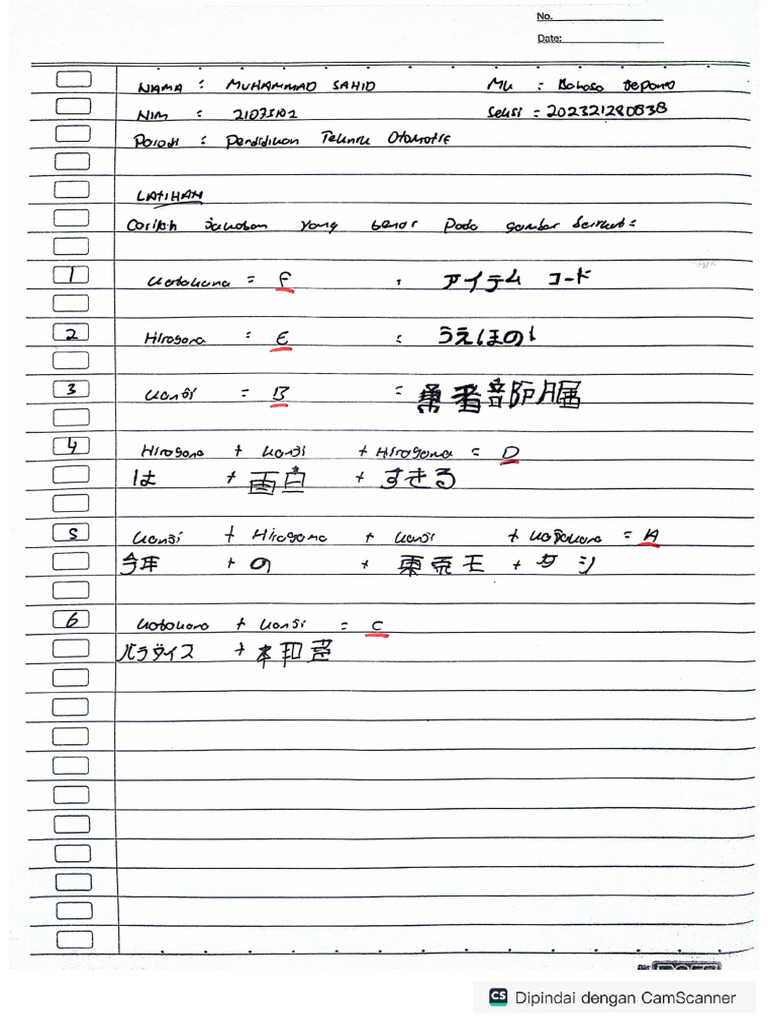 No.
Date:
NAMA : MUHAMMAD SAHID MK : Bahasa Jepang
NIM : 21073102 Seksi = 202321280838
Porodi : Pendidikan Teknik Otomotif
LATIHAN
Carilah Jawaban yang benar Pada gambar berikut =
1 Katakana = F : アイテム コード
2 Hiragana : E : うえほのし
3 Kanji = B =
4 Hiragana + Kanji + Hiragana = D
は + 面白 + すきる
5 Kanji + Hiragana + Kanji + Katakana = A
今年 + の + 東京モ + タシ
6 Katakana + Kanji = C
パラダイス + 本和
CS Dipindai dengan CamScanner